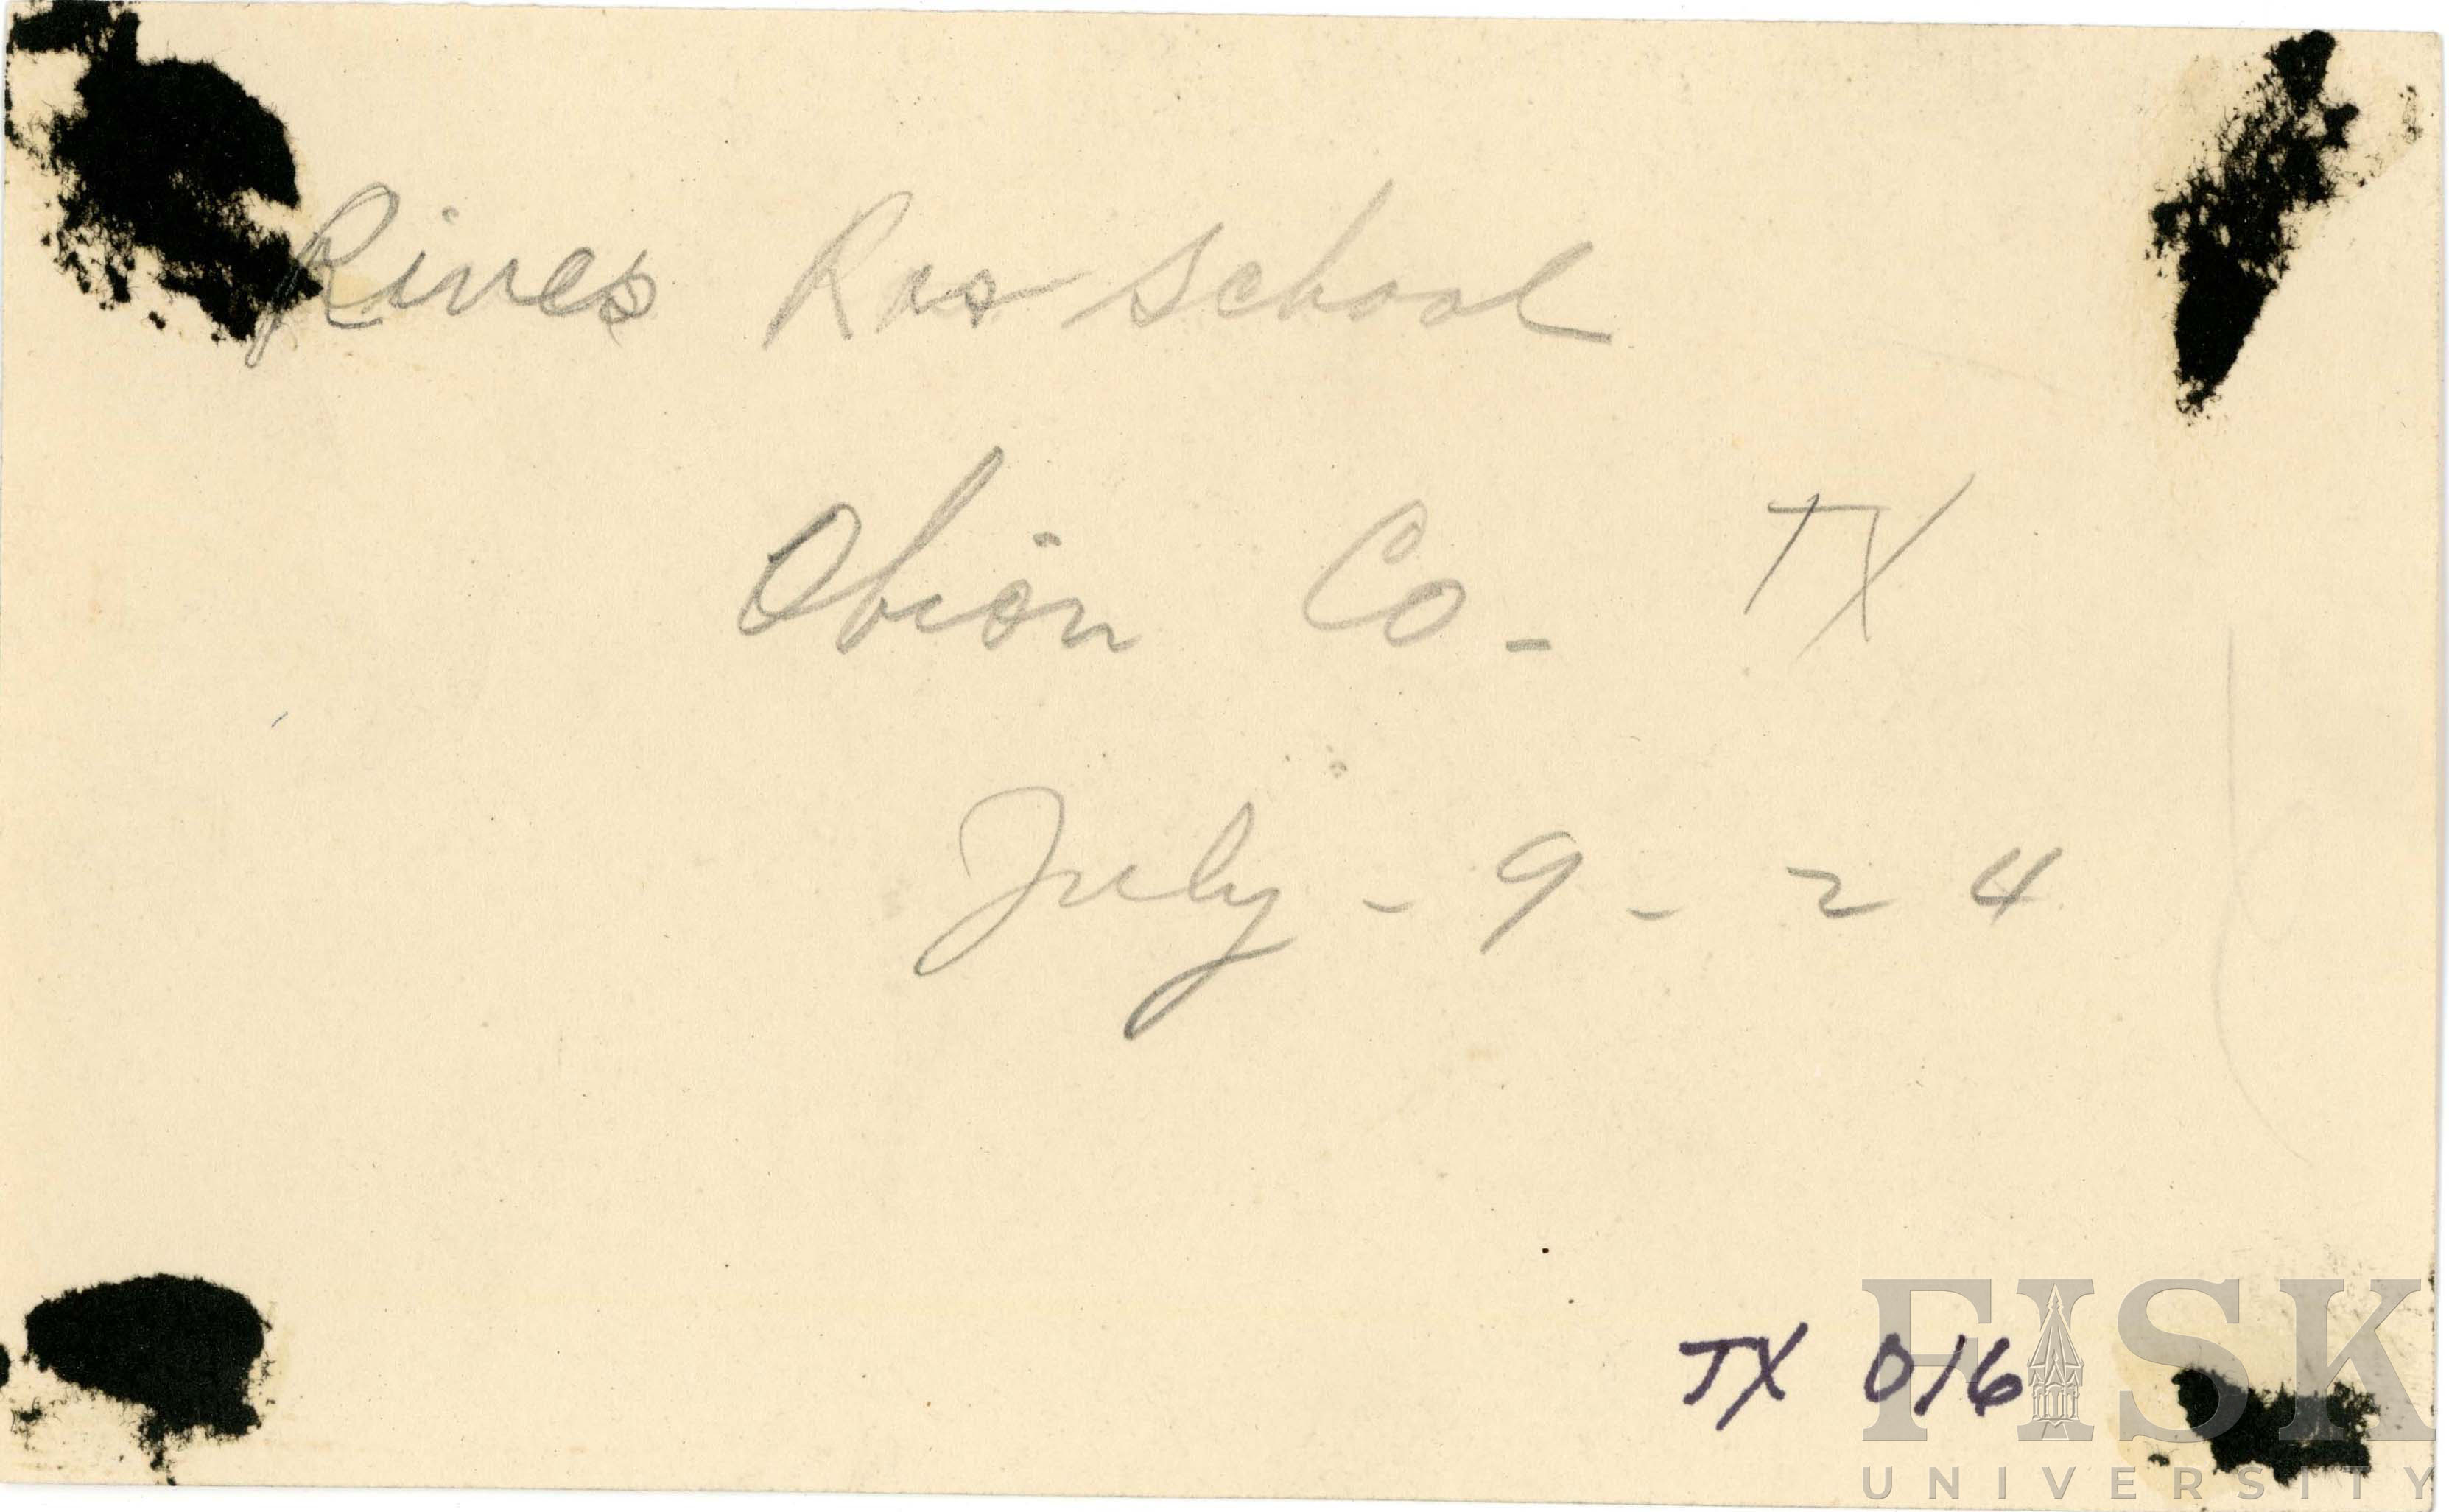 Rives Ros School
Obion Co- TX
July - 9 - 24
TX 016
FISK
UNIVERSITY